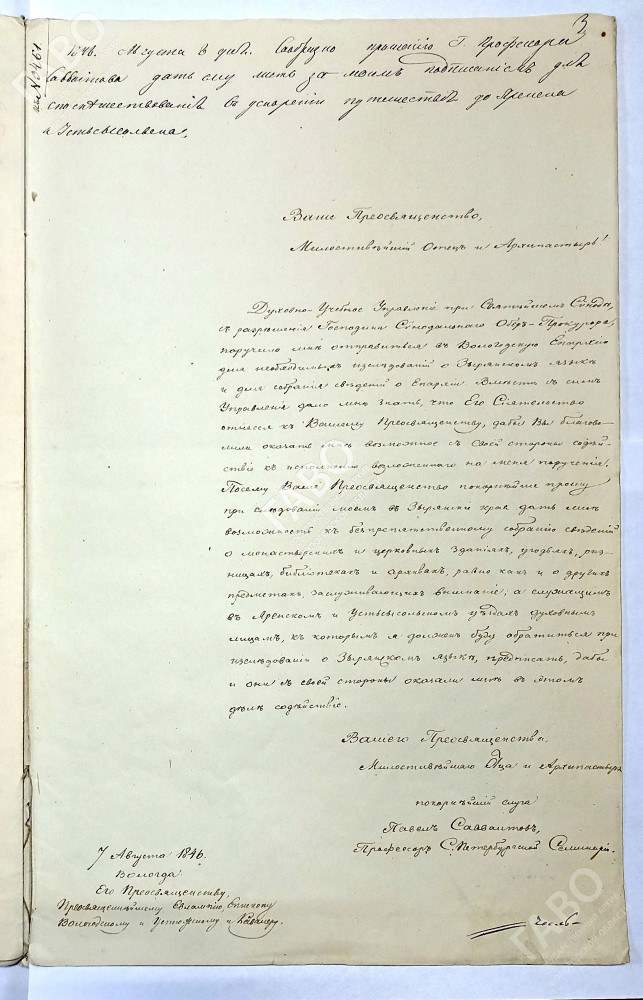 3
1846. Августа 8 дня. Сообразно прошенію Г. Профессора
Савваитова дать ему листъ за моимъ подписаніемъ для
споспѣшествованія въ ускореніи путешествія до Яренска
и Устьсысольска.
№ 3461
Ваше Преосвященство,
Милостивѣйшій Отецъ и Архипастырь!
Духовно-Учебное Управленіе при Святѣйшемъ Сѵнодѣ,
съ разрѣшенія Господина Сѵнодальнаго Оберъ-Прокурора,
поручило мнѣ отправиться въ Вологодскую Епархію
для необходимыхъ изслѣдованій о Зырянскомъ языкѣ
и для собранія свѣдѣній о Епархіи. Вмѣстѣ съ симъ
Управленіе дало мнѣ знать, что Его Сіятельство
отнесся къ Вашему Преосвященству, дабы Вы благово-
лили оказать мнѣ возможное съ Своей стороны содѣй-
ствіе къ исполненію возложеннаго на меня порученія.
Посему Ваше Преосвященство покорнѣйше прошу
при слѣдованіи моемъ въ Зырянскій край дать мнѣ
возможность къ безпрепятственному собранію свѣдѣній
о монастырскихъ и церковныхъ зданіяхъ, угодьяхъ, риз-
ницахъ, библіотекахъ и архивахъ, равно какъ и о другихъ
предметахъ, заслуживающихъ вниманіе; а служащимъ
въ Яренскомъ и Устьсысольскомъ уѣздахъ духовнымъ
лицамъ, къ которымъ я долженъ буду обратиться при
изслѣдованіи о Зырянскомъ языкѣ, предписать, дабы
и они съ своей стороны оказали мнѣ въ этомъ
дѣлѣ содѣйствіе.
Вашего Преосвященства,
Милостивѣйшаго Отца и Архипастыря
покорнѣйшій слуга
Павелъ Савваитовъ,
Профессоръ С.Петербургской Семинаріи.
7 Августа 1846.
Вологда.
Его Преосвященству,
Преосвященнѣйшему Евлампію, Епископу
Вологодскому и Устюжскому и Кавалеру.
ГАВО
ГАВО